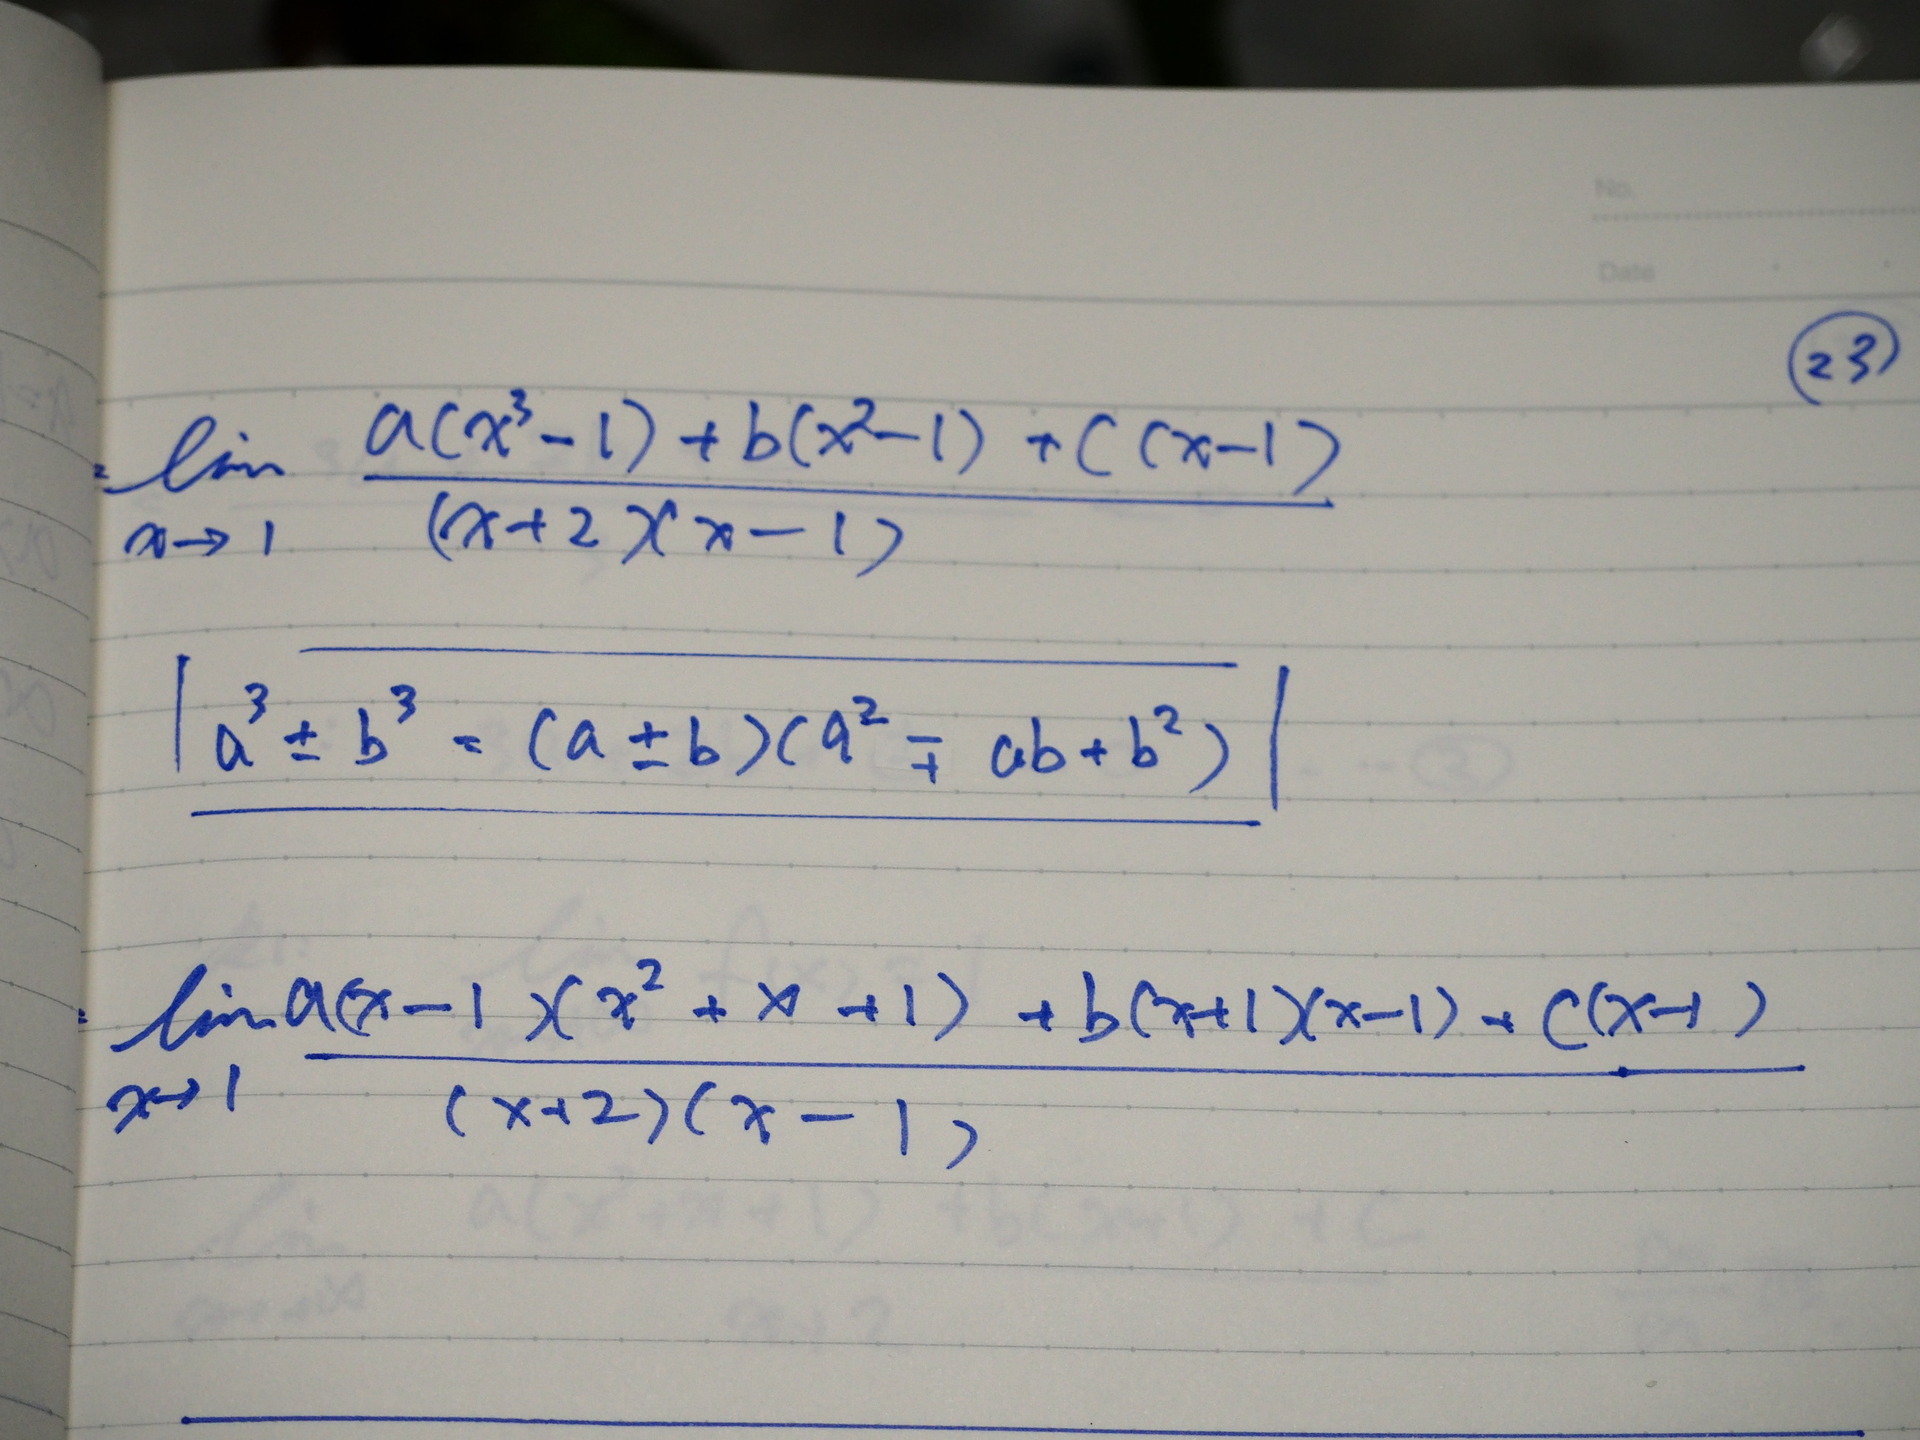 No.
Date
(23)
= lim a(x³-1)+b(x²-1)+c(x-1)
x→1 (x+2)(x-1)
a³ ± b³ = (a ± b)(a² ∓ ab + b²)
= lim a(x-1)(x²+x+1) + b(x+1)(x-1) + c(x-1)
x→1 (x+2)(x-1)